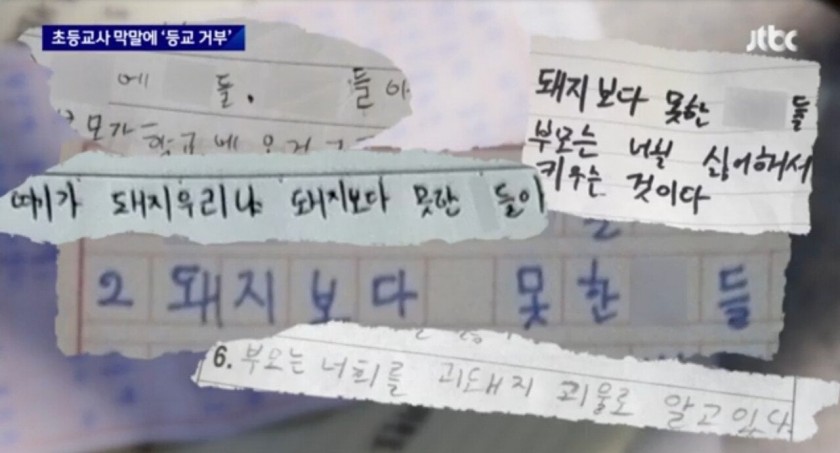 초등교사 막말에 '등교 거부'
jtbc
에 들. 들아
부모가 학교에 오거
돼지보다 못한 들
부모는 너희 싫어해서
키우는 것이다
여기가 돼지우리냐 돼지보다 못한 들아
2 돼지보다 못한 들
6. 부모는 너희를 괴돼지 괴물로 알고있다